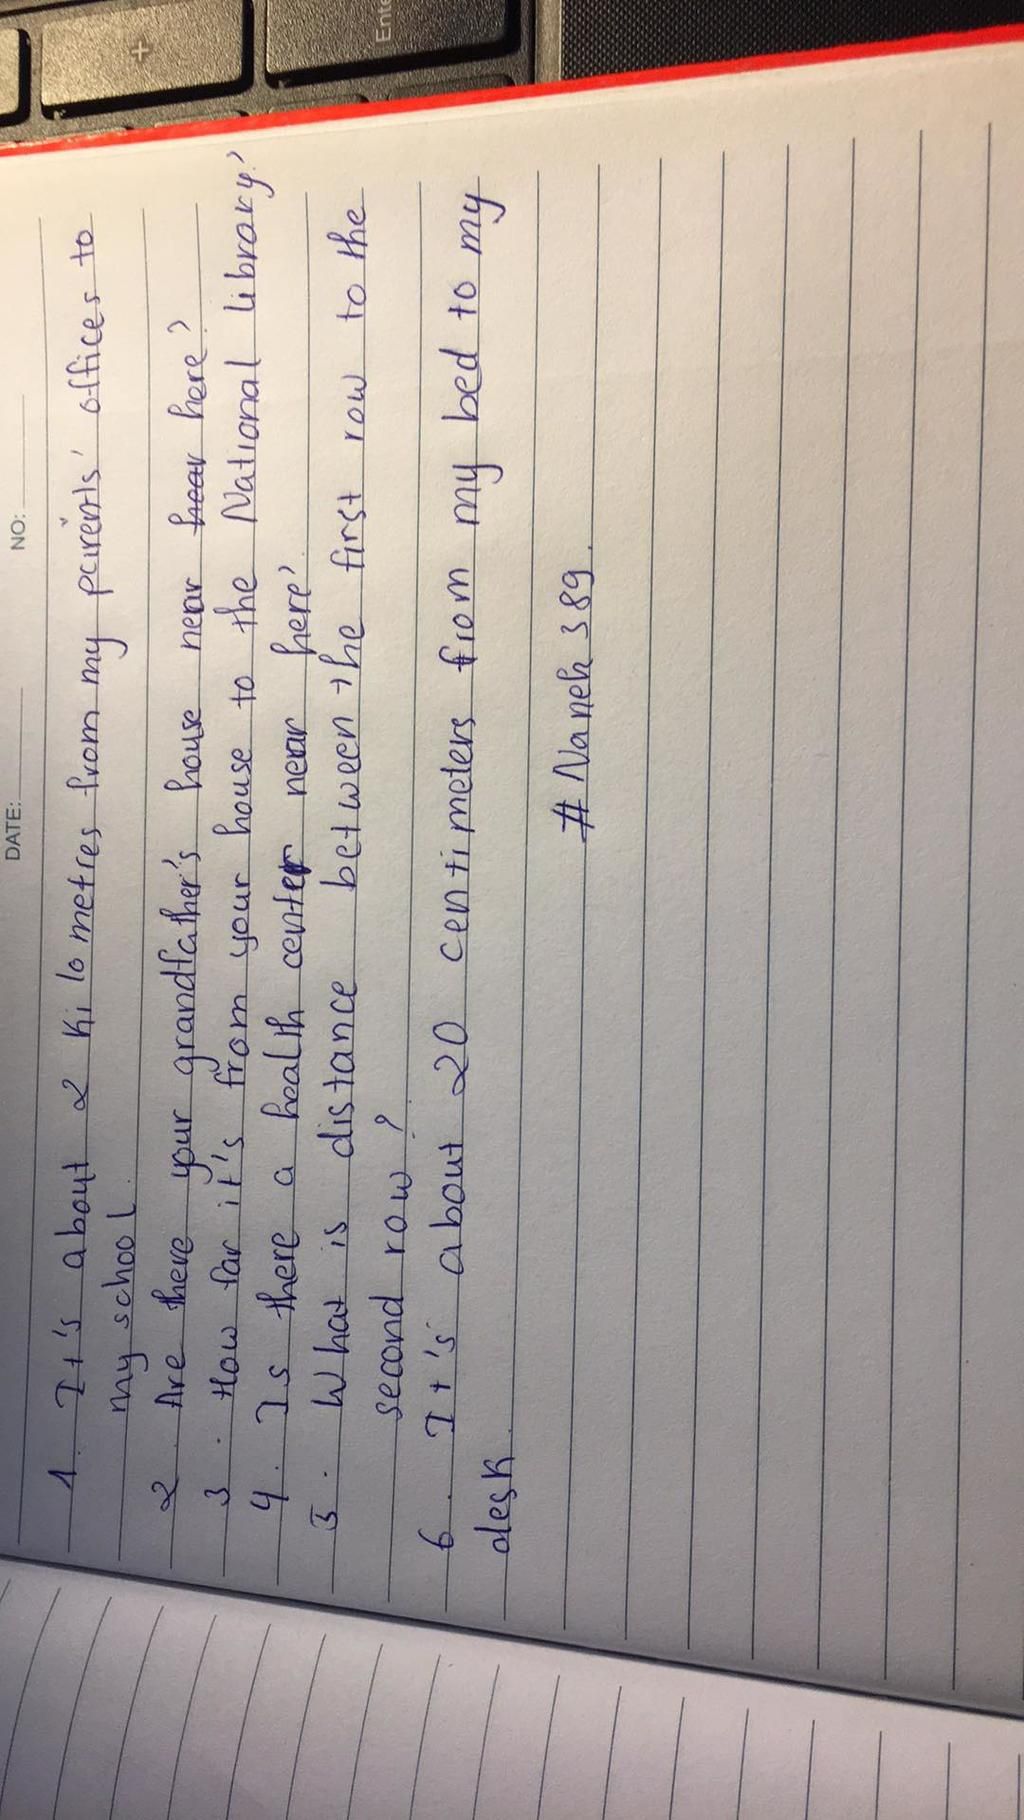 DATE: NO:
1. It's about 2 kilometres from my parents' offices to
my school.
2. Are there your grandfather's house near hear here?
3. How far it's from your house to the National library?
4. Is there a health center near here?
5. What is distance between the first row to the
second row?
6. It's about 20 centimeters from my bed to my
desk.
# Naneh 389.
+
Ente